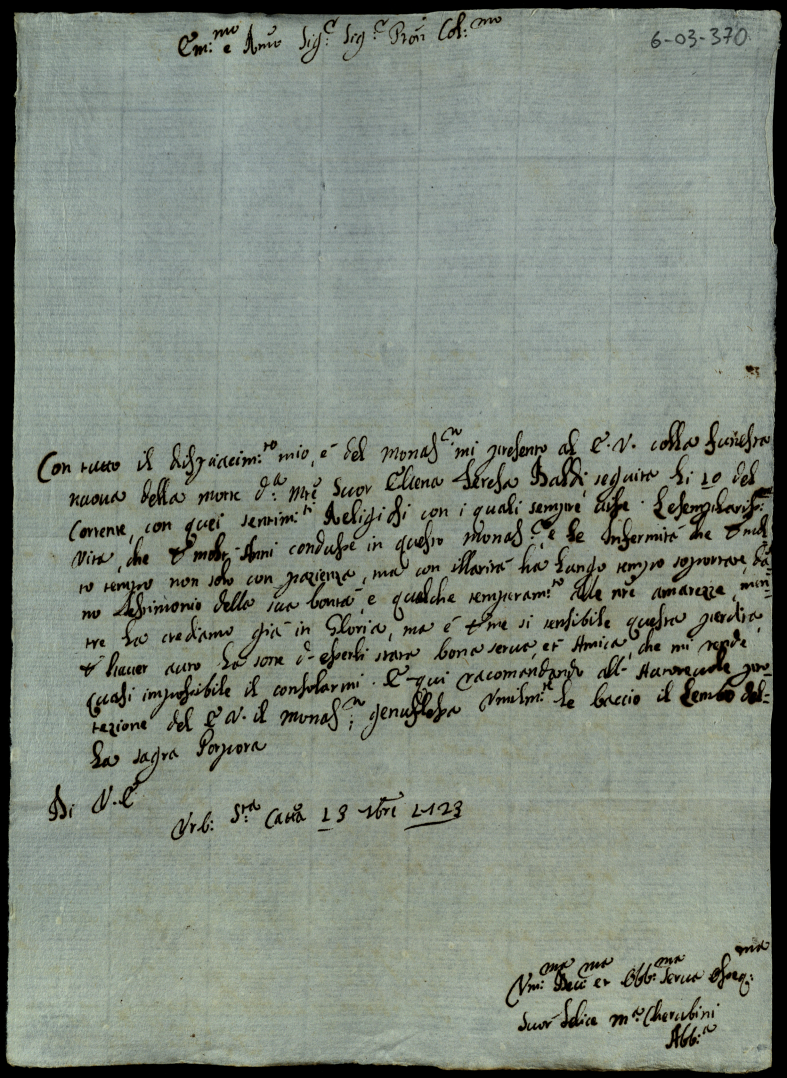 Em:mo e Rmo Sig:r Sig:r Pron Col:mo
6-03-370
Con tutto il dispiacim:to mio, e del Monas:rn mi presento al E.V. colla funesta
nuova della morte d:a Mre Suor Elena Teresa Baldi, seguita li 10 del
Corrente, con quei sentim:ti Religiosi con i quali sempre
Vita, che p molti Anni condusse in questo Monas:o, e le Infermità che p
to tempo non solo con pazienza, ma con illarità ha lungo tempo soportate, da
no testimonio della sua bontà, e qualche temperam:to alle nre amarezze, men
tre la crediamo già in Gloria, ma è p me si sensibile questa perdita,
p hauer auto la sorte d'esserli stata bona serua et Amica, che mi rende
quasi impossibile il consolarmi. E qui racomandando all' Autoreuole pro
tezione del E.V. il Monas:o, genuflessa Vmilm:te le baccio il Lembo del
la sagra Porpora
Di V.E.
Vrb: S:ta Catta 13 1723
Vm:ma Deu:ma et Obb:ma Serua Osseq:ma
Suor Felice M:a Cherubini
Abb:a